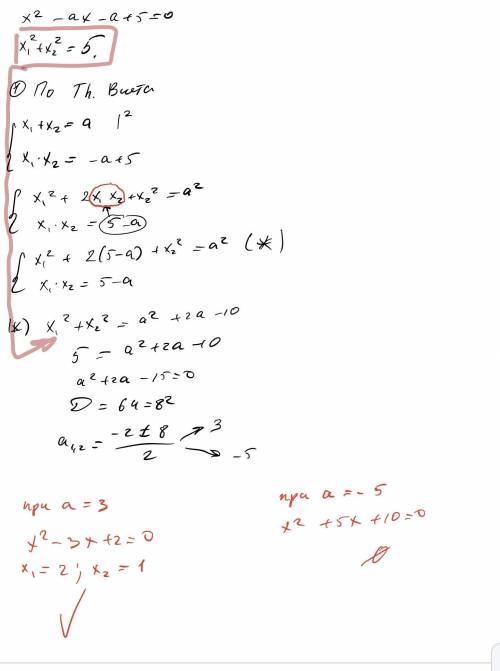 x² - ax - a + 5 = 0
x₁² + x₂² = 5.
① По Th. Виета
x₁ + x₂ = a |²
x₁ · x₂ = -a + 5
x₁² + 2x₁x₂ + x₂² = a²
x₁ · x₂ = 5 - a
x₁² + 2(5-a) + x₂² = a² (*)
x₁ · x₂ = 5 - a
(*) x₁² + x₂² = a² + 2a - 10
5 = a² + 2a - 10
a² + 2a - 15 = 0
D = 64 = 8²
a₁,₂ = (-2 ± 8)/2 → 3 → -5
при a = 3
x² - 3x + 2 = 0
x₁ = 2; x₂ = 1
при a = -5
x² + 5x + 10 = 0
∅